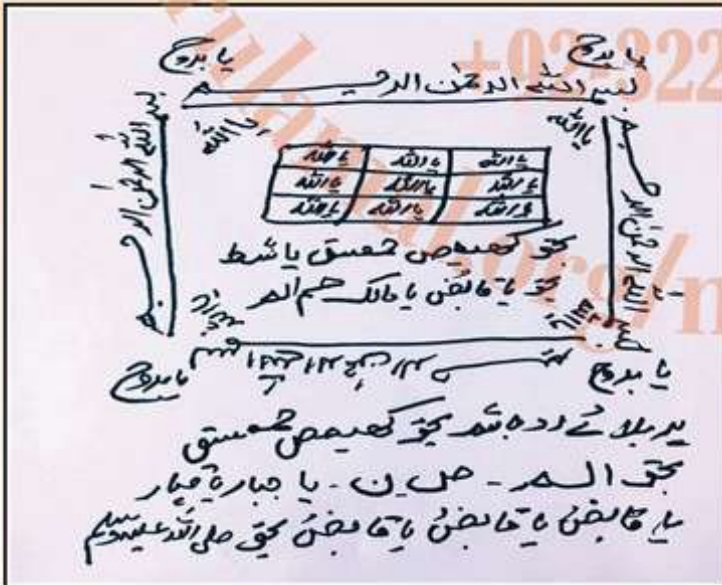 یا بدوح
یا بدوح
بسم اللہ الرحمٰن الرحیم
بسم اللہ الرحمٰن الرحیم
بسم اللہ الرحمٰن الرحیم
یا اللہ
یا اللہ
یا اللہ یا اللہ یا اللہ
یا اللہ یا اللہ یا اللہ
یا اللہ یا اللہ یا اللہ
بحق کھیعص حمعسق یا شط
بحق یا قابض یا مالک حم الم
یا اللہ
یا اللہ
بسم اللہ الرحمٰن الرحیم
یا بدوح
یا بدوح
ہر بلائے رد باشد بحق کھیعص حمعسق
بحق الم - ص ن - یا جبار یا قہار
یا قابض یا قابض یا قابض بحق صلی اللہ علیہ وسلم
+92-322
rulamal.org/n